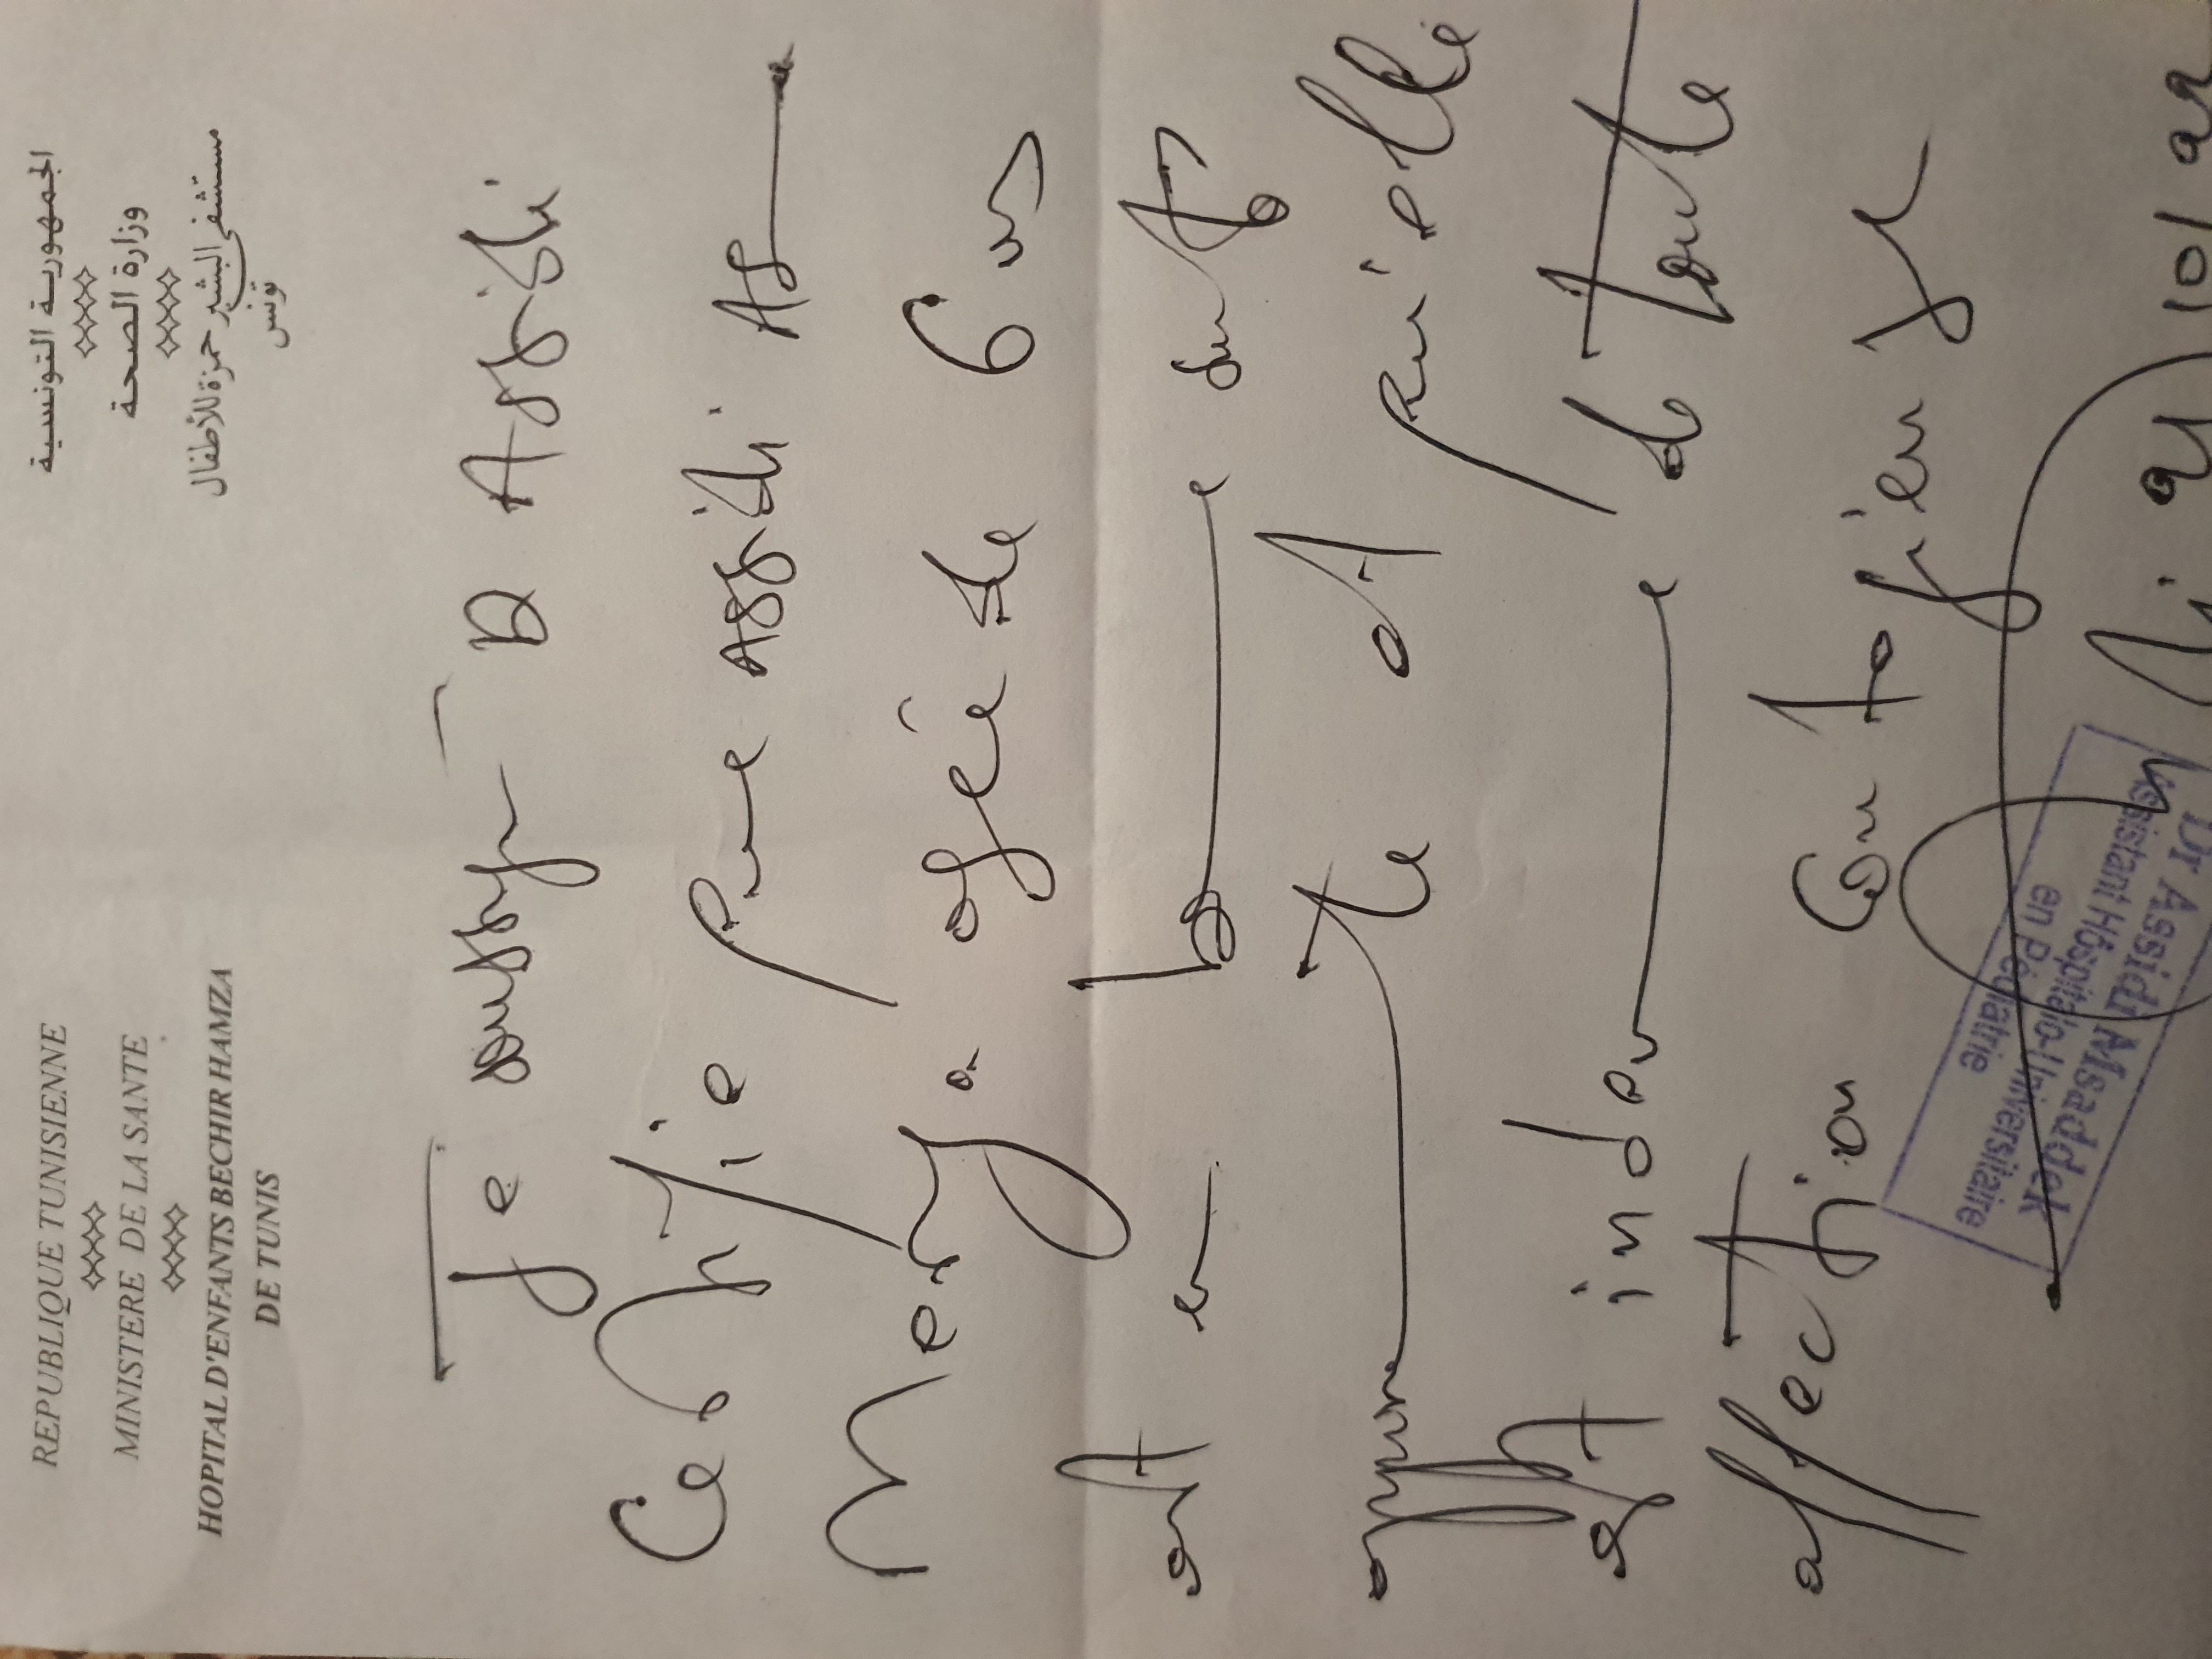 REPUBLIQUE TUNISIENNE
MINISTERE DE LA SANTE
HOPITAL D'ENFANTS BECHIR HAMZA
DE TUNIS
الجمهورية التونسية
وزارة الصحة
مستشفى البشير حمزة للأطفال
تونس
Je Dr Assidi
Certifie que Assidi
agée de 6 ans
est en bonne santé
apparente et qu'elle
est indemne de toute
affection contagieuse
Dr Assidi Msaddek
Assistant Hospitalo-Universitaire
en Pédiatrie